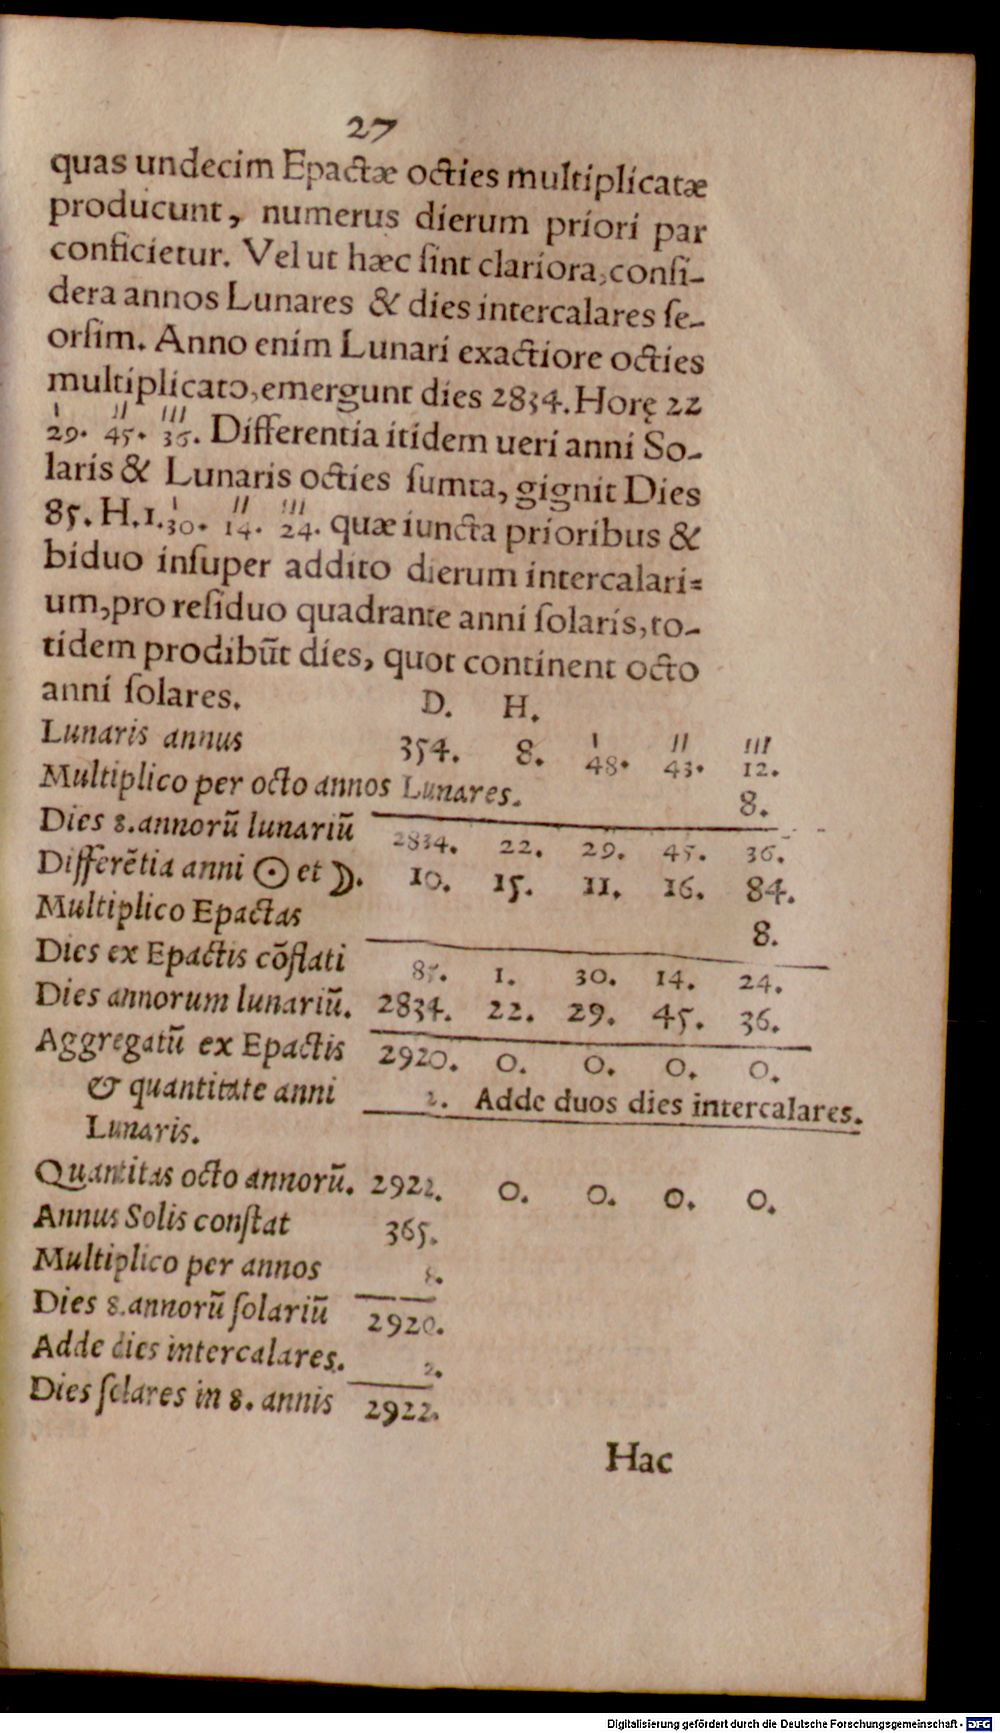 27
quas undecim Epactæ octies multiplicatæ
producunt, numerus dierum priori par
conficietur. Vel ut hæc ſint clariora, conſi-
dera annos Lunares & dies intercalares ſe-
orſim. Anno enim Lunari exactiore octies
multiplicato, emergunt dies 2834. Horę 22
29. 45. 36. Differentia itidem ueri anni So-
laris & Lunaris octies ſumta, gignit Dies
85. H. 1. 30. 14. 24. quæ iuncta prioribus &
biduo inſuper addito dierum intercalari=
um, pro reſiduo quadrante anni ſolaris, to-
tidem prodibūt dies, quot continent octo
anni ſolares. D. H.
Lunaris annus 354. 8. ı 48. ıı 43. ııı 12.
Multiplico per octo annos Lunares. 8.
Dies 8. annorū lunariū 2834. 22. 29. 45. 36.
Differētia anni ☉ et ☽. 10. 15. 11. 16. 84.
Multiplico Epactas 8.
Dies ex Epactis cōſtati 85. 1. 30. 14. 24.
Dies annorum lunariū. 2834. 22. 29. 45. 36.
Aggregatū ex Epactis 2920. 0. 0. 0. 0.
& quantitate anni 2. Adde duos dies intercalares.
Lunaris.
Quantitas octo annorū. 2922. 0. 0. 0. 0.
Annus Solis conſtat 365.
Multiplico per annos 8.
Dies 8. annorū ſolariū 2920.
Adde dies intercalares. 2.
Dies ſolares in 8. annis 2922.
Hac
Digitalisierung gefördert durch die Deutsche Forschungsgemeinschaft - DFG